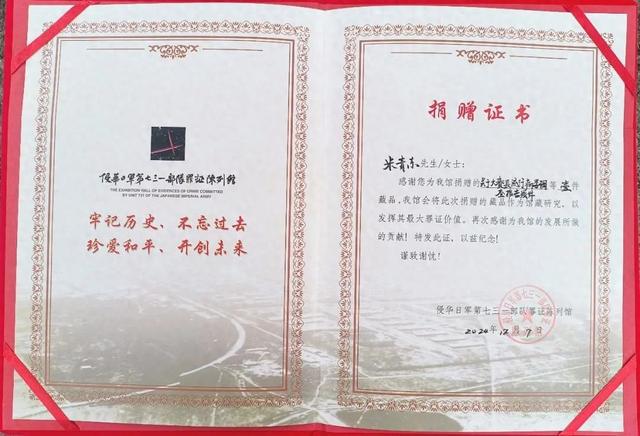 侵华日军第七三一部队罪证陈列馆
THE EXHIBITION HALL OF EVIDENCES OF CRIME COMMITTED
BY UNIT 731 OF THE JAPANESE IMPERIAL ARMY
牢记历史、不忘过去
珍爱和平、开创未来
捐赠证书
米青东先生/女士：
感谢您为我馆捐赠的等壹件
藏品，我馆会将此次捐赠的藏品作为馆藏研究，以
发挥其最大罪证价值。再次感谢为我馆的发展所做
的贡献！特发此证，以兹纪念！
谨致谢忱！
侵华日军第七三一部队罪证陈列馆
2024年12月9日